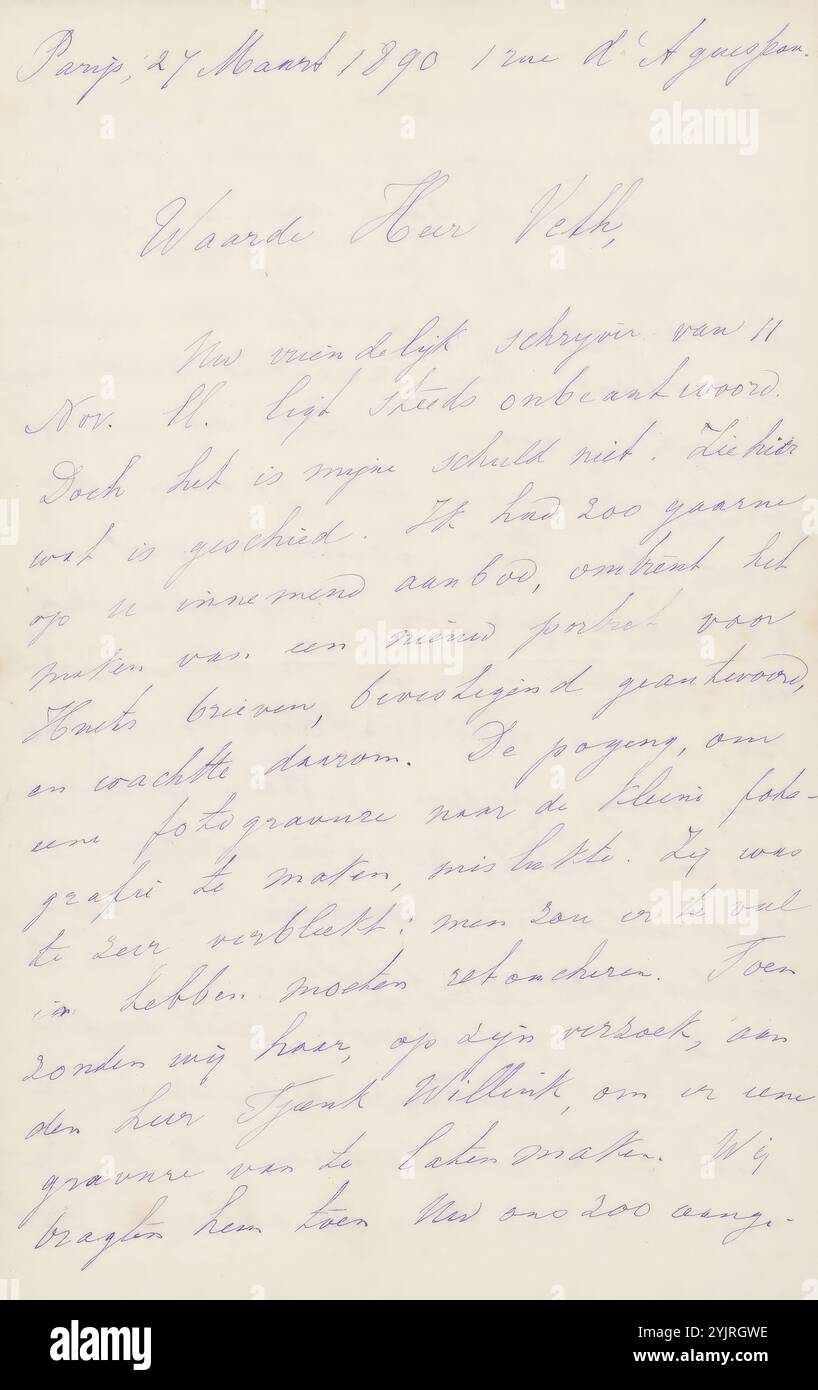 Parijs, 27 Maart 1890 1 rue d'Aguesseau.
Waarde Heer Veth,
Uw vriendelijk schrijven van 11
Nov. ll. ligt steeds onbeantwoord.
Doch het is mijne schuld niet. Ziehier
wat is geschied. Ik had zoo gaarne
op u innemend aanbod, omtrent het
maken van een nieuw portret voor
Huets brieven, bevestigend geantwoord,
en wachtte daarom. De poging, om
eene fotogravure naar de kleine foto-
grafie te maken, mislukte. Zij was
te zeer verbleekt: men zou er te veel
in hebben moeten retoucheren. Toen
zonden wij haar, op zijn verzoek, aan
den heer Tjeenk Willink, om er eene
gravure van te laten maken. Wij
bragten hem toen Uw ons zoo aange-
alamy
Image ID: 2YJRGWE
www.alamy.com